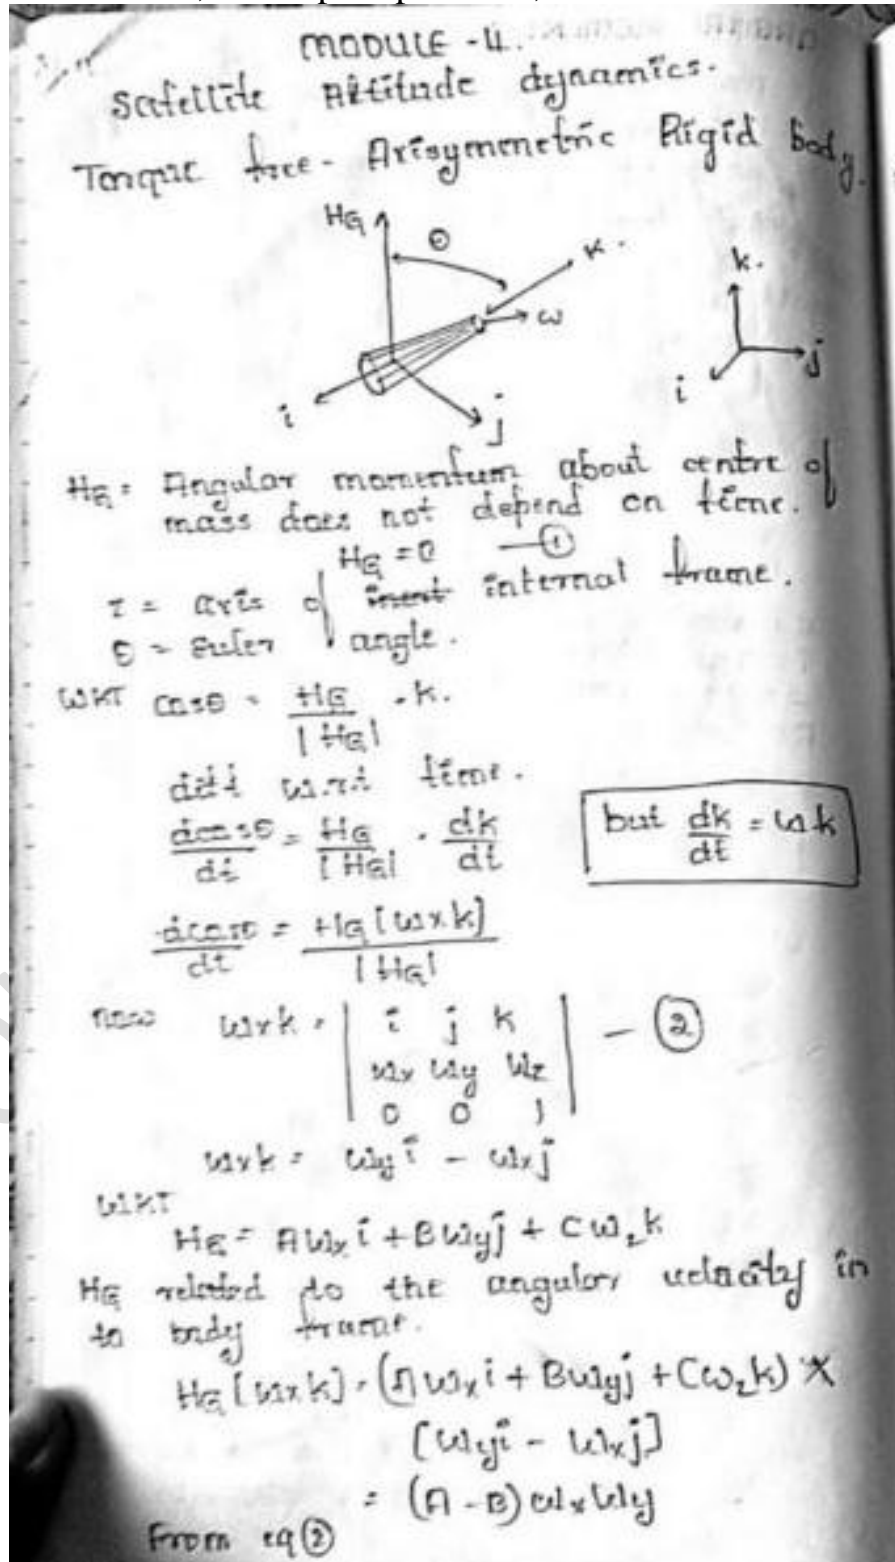 MODULE - 4.
Satellite Attitude dynamics.
Torque free - Axisymmetric Rigid body.
HG
θ
k.
ω
i
j
k.
j
i
HG = Angular momentum about centre of
mass does not depend on time.
HG = 0 — ①
z = axis of internal frame.
θ = Euler angle.
WKT cosθ = HG / |HG| . k.
diff w.r.t time.
dcosθ/dt = HG/|HG| . dk/dt
but dk/dt = ωk
dcosθ/dt = HG [ω×k] / |HG|
now ω×k = | i j k | — ②
ωx ωy ωz
0 0 1
ω×k = ωy i - ωx j
WKT
HG = Aωx i + Bωy j + Cωz k
HG related to the angular velocity in
to body frame.
HG [ω×k] = (Aωx i + Bωy j + Cωz k) ×
[ωy i - ωx j]
= (A - B) ωx ωy
From eq ②